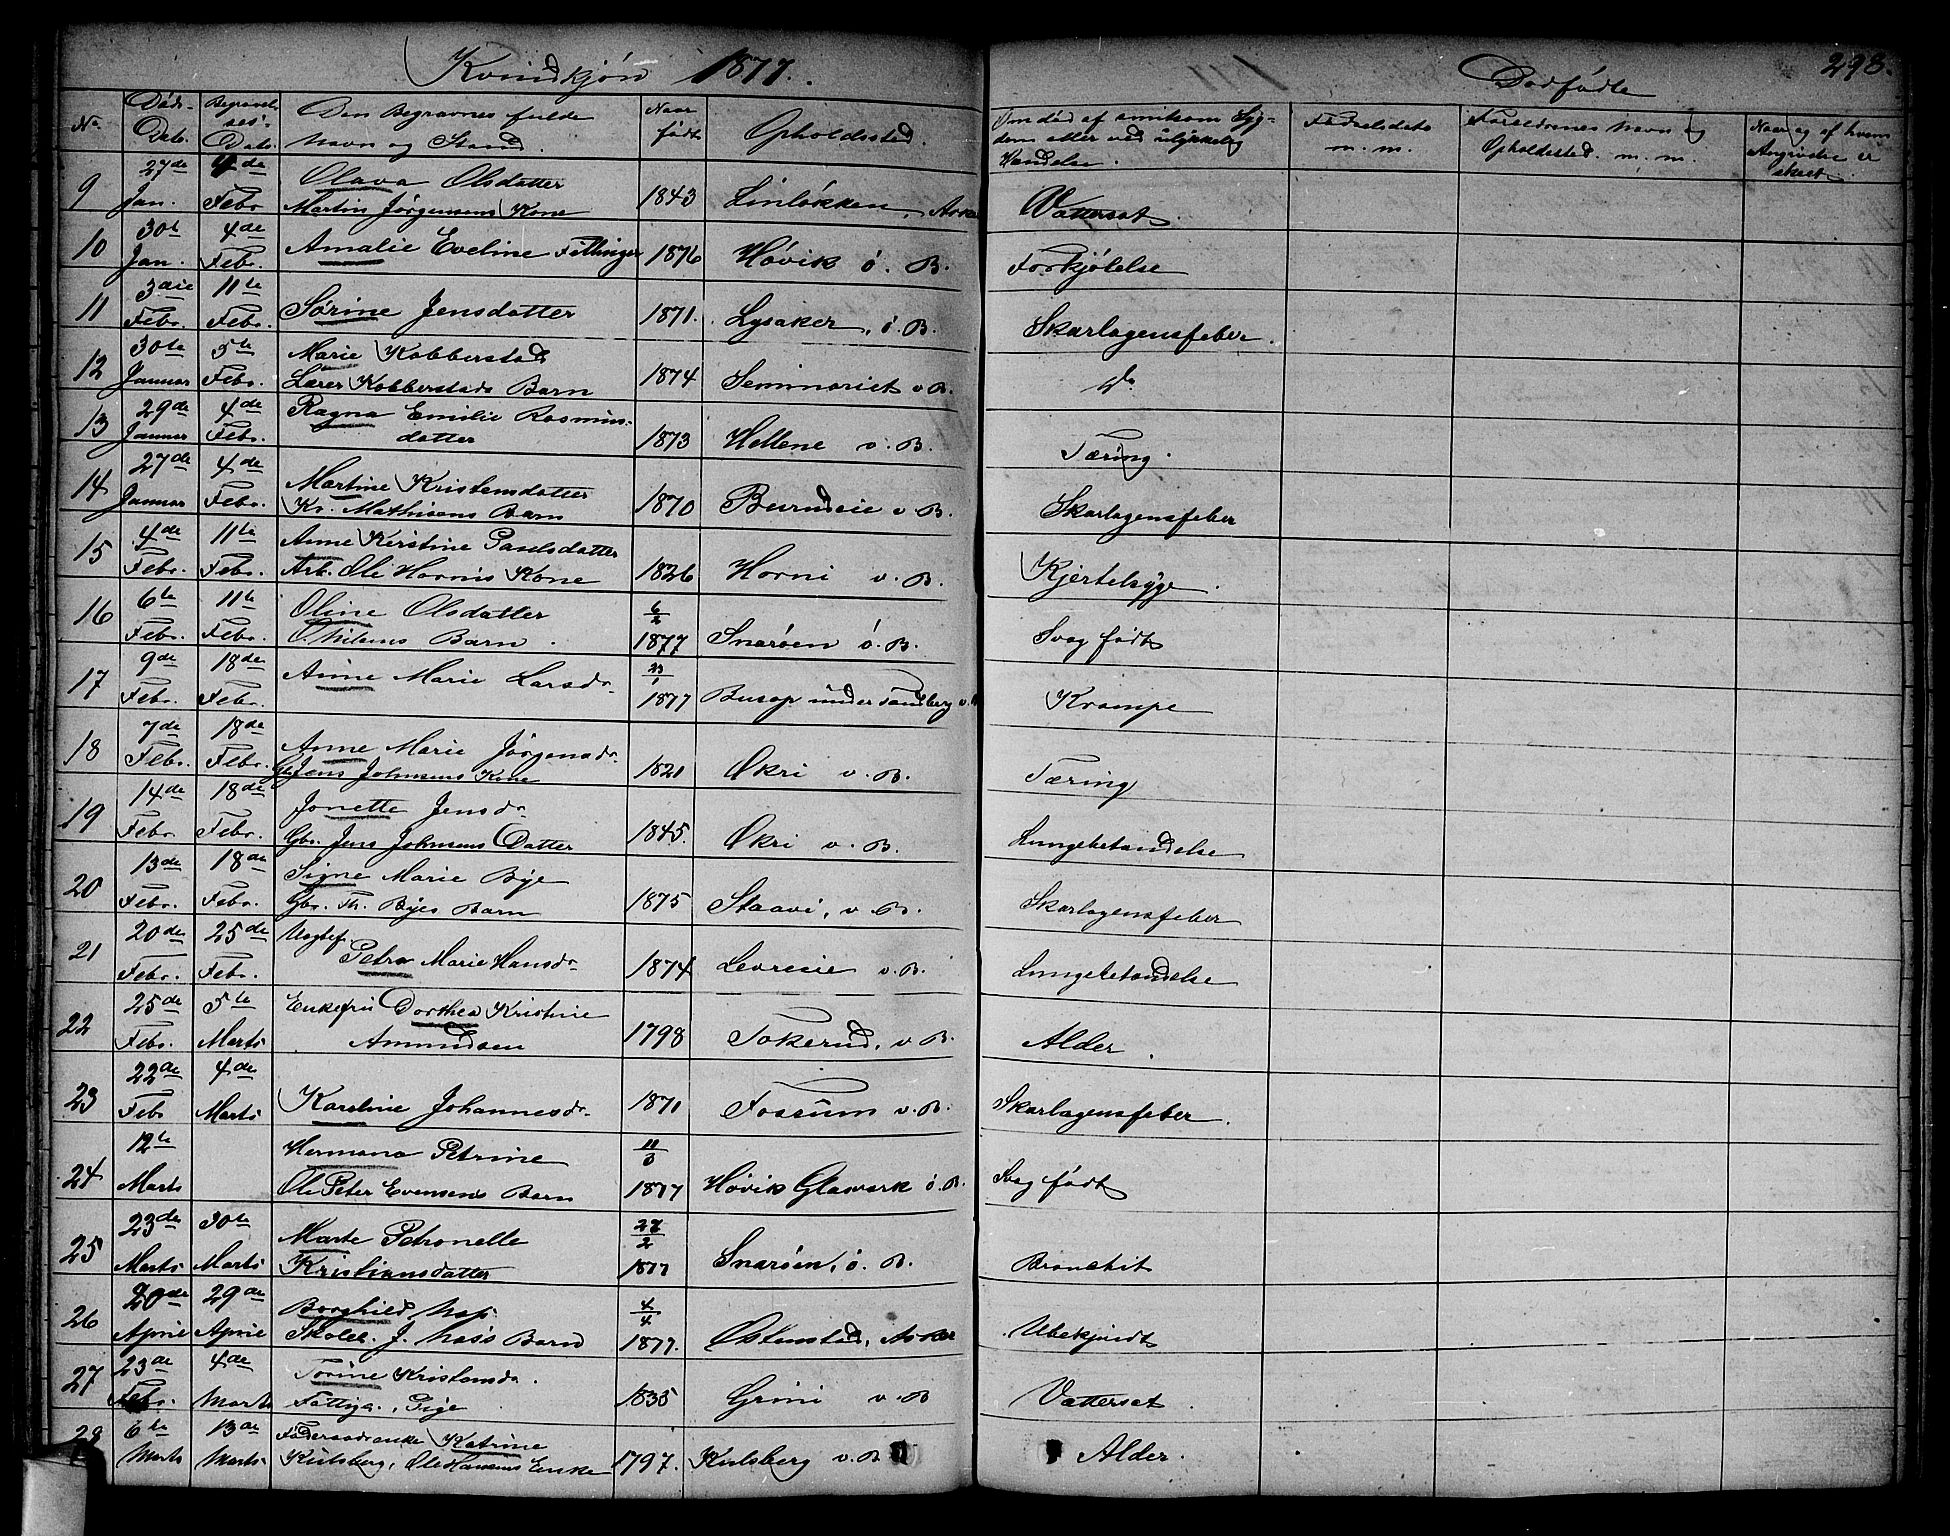 Kvindkjøn 1877.
Dødfødte
298.
No
Døds-
Dato.
Begravel-
ses-
Dato.
Den Begravnes fulde
Navn og Stand.
Naar
født
Opholdssted.
Om død af smitsom Syg-
dom eller ved ulykkelig
Hændelse.
Fødselsdato
m. m.
Forældrenes Navn og
Opholdssted. m. m.
Naar og af hvem
Angivelse er
skeet.
9 27de Jan. 4de Febr. Olava Olsdatter
Martin Jørgensens Kone 1843 Linløkken, Asker Vattersot.
10 30te Jan. 4de Febr. Amalie Eveline Fillinger 1876 Høvik ø. B. Forkjølelse
11 3die Febr. 11te Febr. Sørine Jensdatter 1871. Lysaker, ø. B. Skarlagensfeber.
12 30te Januar 5te Febr. Marie Kobberstad
Lærer Kobberstads Barn 1874 Seminariet v B. Do
13 29de Januar 4de Febr. Ragna Emilie Rasmus-
datter 1873 Hellene v. B. Tæring.
14 27de Januar 4de Febr. Martine Kristensdatter
Kr. Mathisens Barn 1870 Burudeie v B. Skarlagensfeber
15 4de Febr. 11te Febr. Anne Kirstine Paulsdatter
Arb. Ole Hornis Kone 1826 Horni v. B. Kjertelsyge.
16 6te Febr. 11te Febr. Oline Olsdatter
O. Nilsens Barn. 6/2 1877 Snarøen ø. B. Svag født
17 9de Febr. 18de Febr. Anne Marie Larsdr. 23/1 1877 Busop under Tandberg v. B Krampe
18 7de Febr. 18de Febr. Anne Marie Jørgensdr.
Gb. Jens Johnsens Kone 1821 Økri v. B. Tæring
19 14de Febr. 18de Febr. Jonette Jensdr.
Gbr. Jens Johnsens Datter 1845. Økri v. B. Lungebetændelse
20 13de Febr. 18de Febr. Signe Marie Bye
Gbr. Th. Byes Barn 1875 Staavi, v. B. Skarlagensfeber
21 20de Febr. 25de Febr. Uægtef.
Petra Marie Hansdr. 1874 Levreeie v. B. Lungebetændelse
22 25de Febr. 5te Marts Enkefru Dorthea Kristine
Amundsen 1798 Tokerud, v B. Alder.
23 22de Febr 4de Marts Karoline Johannesdr. 1871 Fossum v. B. Skarlagensfeber.
24 12te Marts Hermana Petrine
Ole Peter Evensens Barn 11/3 1877 Høvik Glasverk ø. B. Svag født
25 23de Marts 30te Marts Marte Petronelle
Kristiansdatter 27/2 1877 Snarøen, ø. B. Bronchit
26 20de April 29de April Borghild Næss
Skolel. J. Næss Barn 4/4 1877. Østenstad, Asker Ubekjendt
27 23de Febr. 4de Marts Torine Kristensdr.
Fattigl., Pige 1835 Grini v. B Vattersot.
28 6te Marts 13de Marts Føderaadsenke Katrine
Kulsberg, Ole Hansens Enke 1797. Kulsberg v. B Alder.